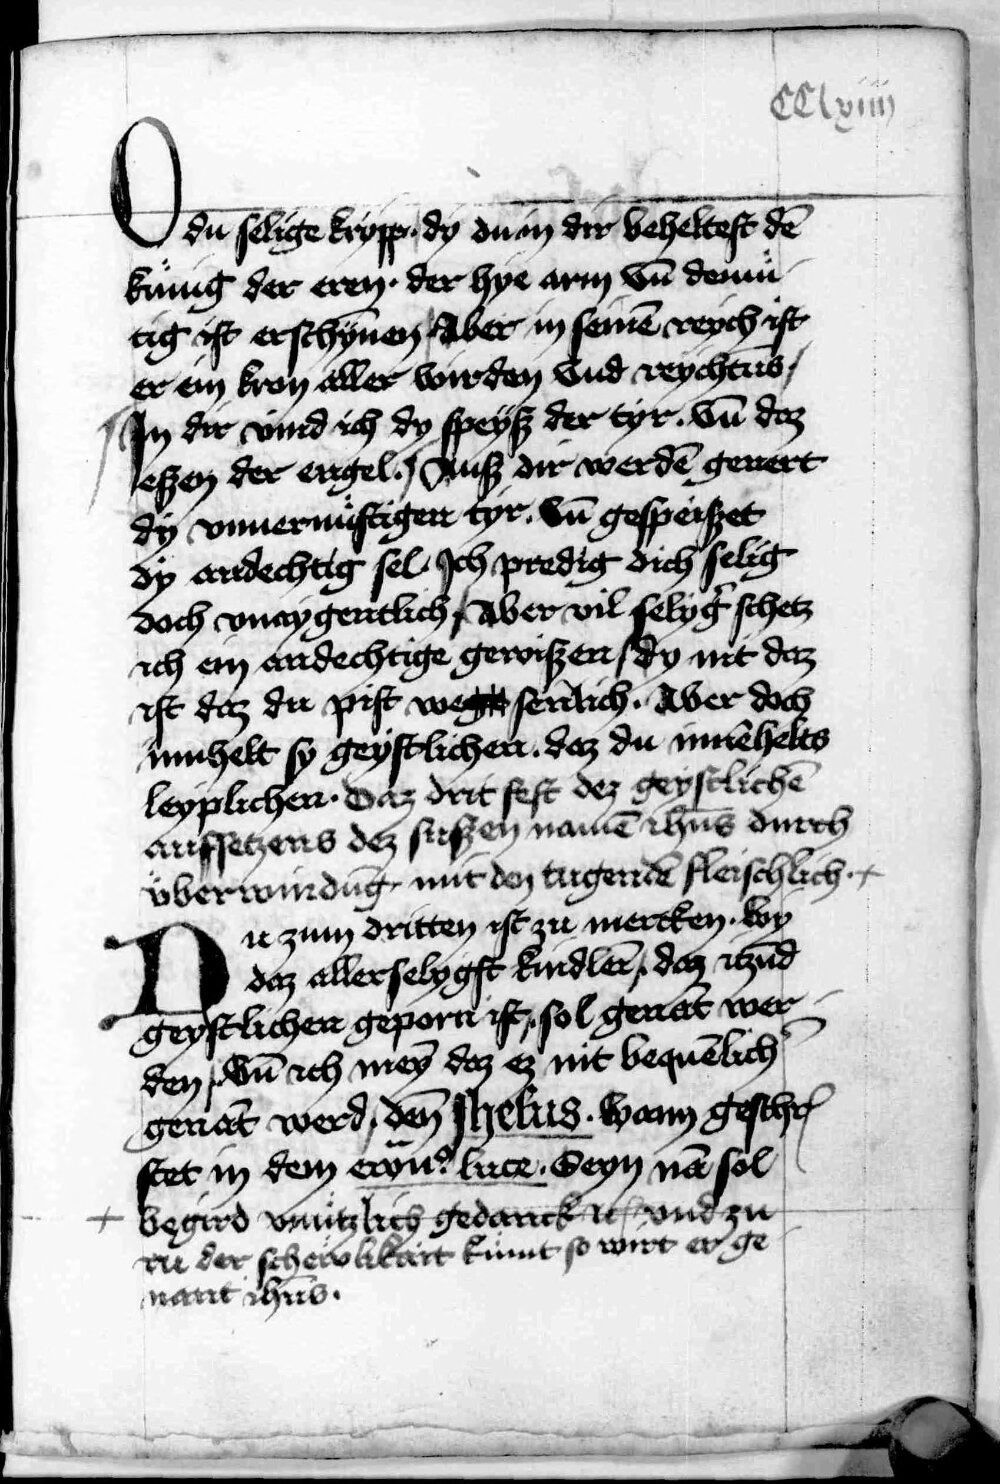 CClxiiii
O du selige kripp · dy du in dir beheltest dē
künig der eren · der hye arm vn̄ demü
tig ist erschynen / Aber in seinē reych ist
er ein kron aller wirden vnd reychtūs /
In dir vind ich dy speysz der tyr · vn̄ daz
eszen der engel · / Ausz dir werdē genert
dy vnuernüftigen tyr · vn̄ gespeiszet
dy andechtig sel · Ich predig dich selig
doch vnaygentlich / Aber vil selyg̃ schetz
ich ein andechtige gewiszen / dy nit daz
ist daz du pist senlich · Aber doch
innhelt sy geystlichen · daz du innēhelts
leyplichen · Daz drit fest dez geystlichē
auffsetzens dez suszen namē ihūs durch
überwindūg · mit den tugendē fleischlich · +
Du zum dritten ist zu mercken · wy
daz allerselygst kindlein / daz itzūd
geystlichen geporn ist / sol genāt wer
den / vn̄ ich mey̅ daz ez nit bequēlich̕
genāt werd / den̄ Ihesus · wann geschri
stet in dem ewāū° luce · Seyn nā sol
+ begird vnützlich gedanck u / vnd zu
ru der scheiwlikait kümt so wirt er ge
nant ihūs ·